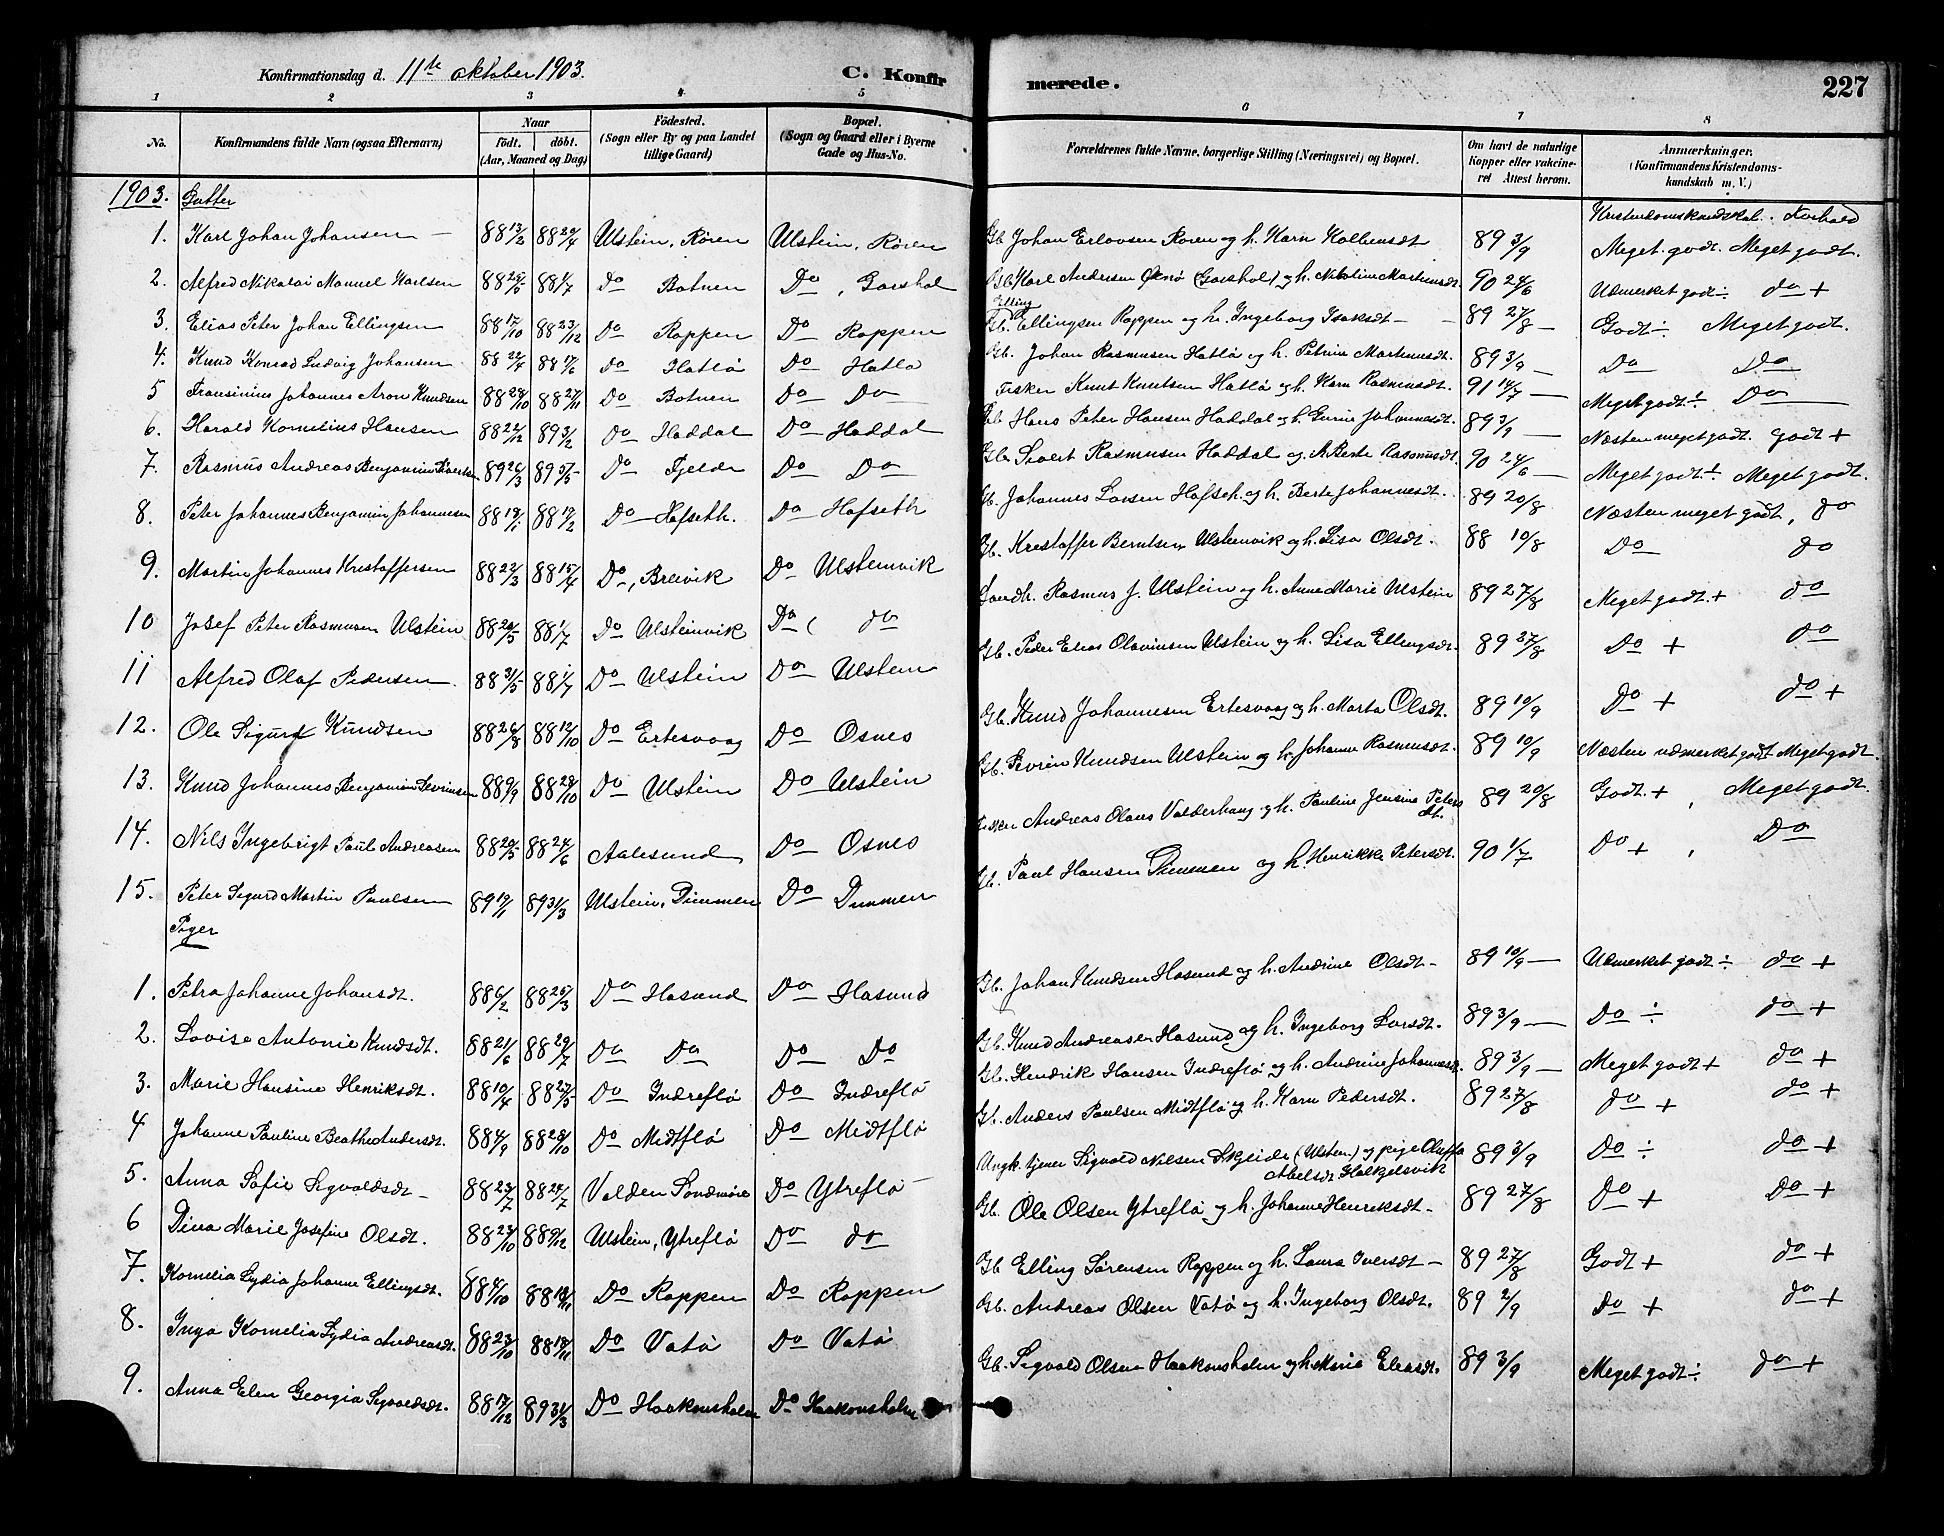 Konfirmationsdag d. 11te oktober 1903. C. Konfirmerede. 227
1 2 3 4 5 6 7 8
No. Konfirmandens fulde Navn (ogsaa Efternavn) Naar födt. döbt. (Aar, Maaned og Dag) Födested. (Sogn eller By og paa Landet tillige Gaard) Bopæl. (Sogn og Gaard eller i Byerne Gade og Hus-No. Forældrenes fulde Navne, borgerlige Stilling (Næringsvei) og Bopæl. Om havt de naturlige Kopper eller vakcineret Attest herom. Anmærkninger. (Konfirmandens Kristendomskundskab m. V.)
1903. Gutter Kristendomskundskab. Forhold
1. Karl Johan Johansen 88 13/2 88 29/4 Ulstein, Rören Ulstein, Rören Gb. Johan Erlovsen Roren og h. Karn Kolbensdt 89 3/9 Meget godt. Meget godt.
2. Alfred Nikolai Manuel Karlsen 88 25/5 88 1/7 Do Botnen Do, Garshol Gb. Karl Andersen (Garshol) og h. Nikoline Martinusdt. 90 24/6 Udmerket godt ÷ do +
3. Elias Peter Johan Ellingsen 88 17/10 88 23/12 Do Roppen Do Roppen Gb. Elling Ellingsen Roppen og h. Ingeborg Isaksdt 89 27/8 Godt ÷ Meget godt.
4. Knud Konrad Ludvig Johansen 88 22/4 88 17/6 Do Hatlö Do Hatlö Gb. Johan Rasmusen Hatlö og h. Petrine Martinusdt. 89 3/9 Do Do
5 Fransinius Johannes Aron Knudsen 88 28/10 88 27/11 Do Botnen Do Do Fisker Knut Knutsen Hatlö og h. Karn Rasmusdt. 91 14/7 Meget godt ÷ Do
6. Harald Kornelius Hansen 88 22/12 89 3/2 Do Haddal Do Haddal Gb. Hans Peter Hansen Haddal og h. Gurine Johannesdt. 89 3/9 Næsten meget godt. godt +
7. Rasmus Andreas Benjamin Sivertsen 89 26/3 89 5/5 Do Fjelde Do Do Gb. Sivert Rasmusen Haddal og h. Berte Rasmusdt. 90 24/6 Meget godt ÷ Meget godt.
8. Peter Johannes Benjamin Johannesen 88 18/1 88 19/2 Do Hofseth. Do Hofseth Gb. Johannes Larsen Hofseth. og h. Berte Johannesdt. 89 20/8 Næsten meget godt, do
9. Martin Johannes Kristoffersen 88 22/3 88 15/4 Do, Breivik Do Ulsteinvik Gb. Kristoffer Berntsen Ulsteinvik og h. Lisa Olsdt. 88 10/8 Do do
10 Josef Peter Rasmusen Ulstein 88 20/5 88 1/7 Do Ulsteinvik Do do Landh. Rasmus J. Ulstein og h. Anne Marie Ulstein 89 27/8 Meget godt + do
11 Alfred Olaf Pedersen 88 31/5 88 1/7 Do Ulstein Do Ulstein Gb. Peder Elias Olavinsen Ulstein og h. Lisa Ellingsdt. 89 27/8 Do + do
12. Ole Sigurd Knudsen 88 26/8 88 12/10 Do Ertesvaag Do Osnes Gb. Knud Johannesen Ertesvaag og h. Marta Olsdt. 89 10/9 Do + do +
13. Knud Johannes Benjamin Sevrinsen 88 9/9 88 28/10 Do Ulstein Do Ulstein Gb. Sevrin Knudsen Ulstein og h. Johanne Rasmusdt. 89 10/9 Næsten udmerket godt Meget godt.
14. Nils Ingebrigt Paul Andreasen 88 20/5 88 24/6 Aalesund Do Osnes Fisker Andreas Olaus Valderhaug og h. Pauline Jensine Petersdt. 89 20/8 Godt +, Meget godt.
15. Peter Sigurd Martin Paulsen 89 19/1 89 31/3 Ulstein, Dimmen Do Dimmen Gb. Paul Hansen Dimmen og h. Henrikke Petersdt. 90 1/7 Do +, Do
Piger
1. Petra Johanne Johansdt. 88 6/2 88 25/3 Do Hasund Do Hasund Gb. Johan Knudsen Hasund og h. Andrine Olsdt 89 10/9 Udmerket godt ÷ do +
2. Lovise Antonie Knudsdt. 88 21/6 88 29/7 Do Do Do Do Gb. Knud Andreasen Hasund og h. Ingeborg Larsdt. 89 3/9 Do ÷ do +
3. Marie Hansine Henriksdt. 88 10/4 88 27/5 Do Indreflö Do Indreflö Gb. Hendrik Hansen Indreflö og h. Andrine Johannesdt. 89 3/9 Meget godt + do +
4 Johanne Pauline Beathe Andersdt. 88 4/9 88 28/10 Do Midtflö Do Midtflö Gb. Anders Paulsen Midtflö og h. Karn Pedersdt. 89 27/8 do + do +
5. Anna Sofie Sigvaldsdt 88 23/7 88 29/7 Volden Söndmöre Do Ytreflö Ungk. tjener Sigvald Nilsen Skjeide (Ulsten) og pige Oluffa Abelsdt Halkjelsvik 89 3/9 Do ÷ do +
6 Dina Marie Josefine Olsdt. 88 29/10 88 9/12 Ulstein, Ytreflö Do do Gb. Ole Olsen Ytreflö og h. Johanne Henriksdt 89 27/8 Do + Do +
7. Kornelia Lydia Johanne Ellingsdt. 88 4/10 88 18/11 Do Roppen Do Roppen Gb. Elling Sørensen Roppen og h. Laura Iversdt 89 27/8 Godt + do +
8. Inga Kornelia Lydia Andreasdt. 88 23/10 88 18/11 Do Vatö Do Vatö Gb. Andreas Olsen Vatö og h. Ingeborg Olsdt. 89 2/9 do + do +
9. Anna Elen Georgia Sigvaldsdt. 88 17/12 89 31/3 Do Haakonsholm Do Haakonsholm Gb. Sigvald Olsen Haakonsholm og h. Marie Eliasdt. 89 3/9 Meget godt ÷ do +